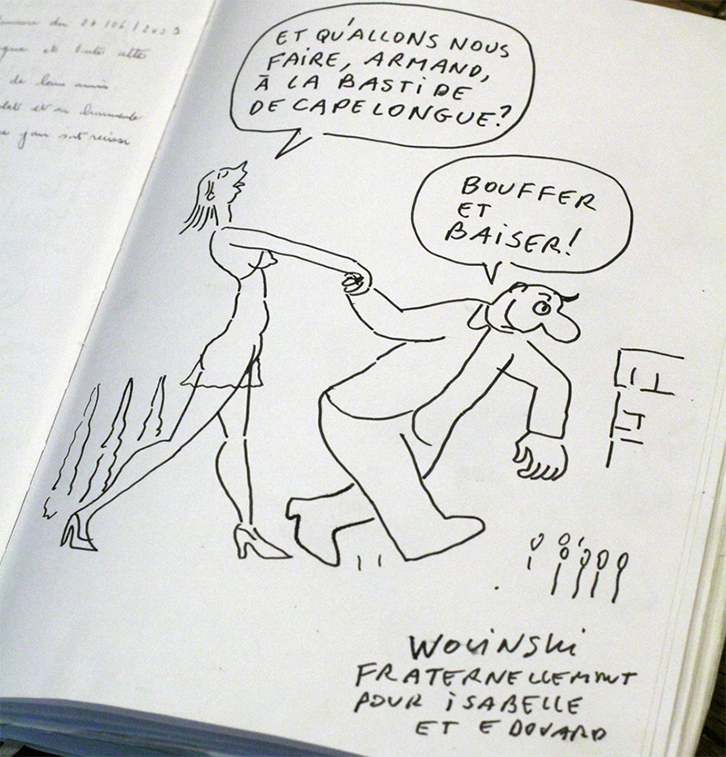 ET QU'ALLONS NOUS
FAIRE, ARMAND,
À LA BASTIDE
DE CAPELONGUE?
BOUFFER
ET
BAISER!
WOLINSKI
FRATERNELLEMENT
POUR ISABELLE
ET EDOUARD
de leur
et